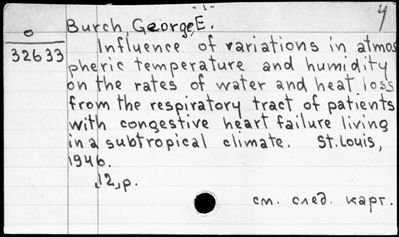 -1-
Burch, George E. 4
0
32633
Influence of variations in atmos
pheric temperature and humidity
on the rates of water and heat loss
from the respiratory tract of patients
with congestive heart failure living
in a subtropical climate. St. Louis,
1946.
12 p.
см. след. карт.